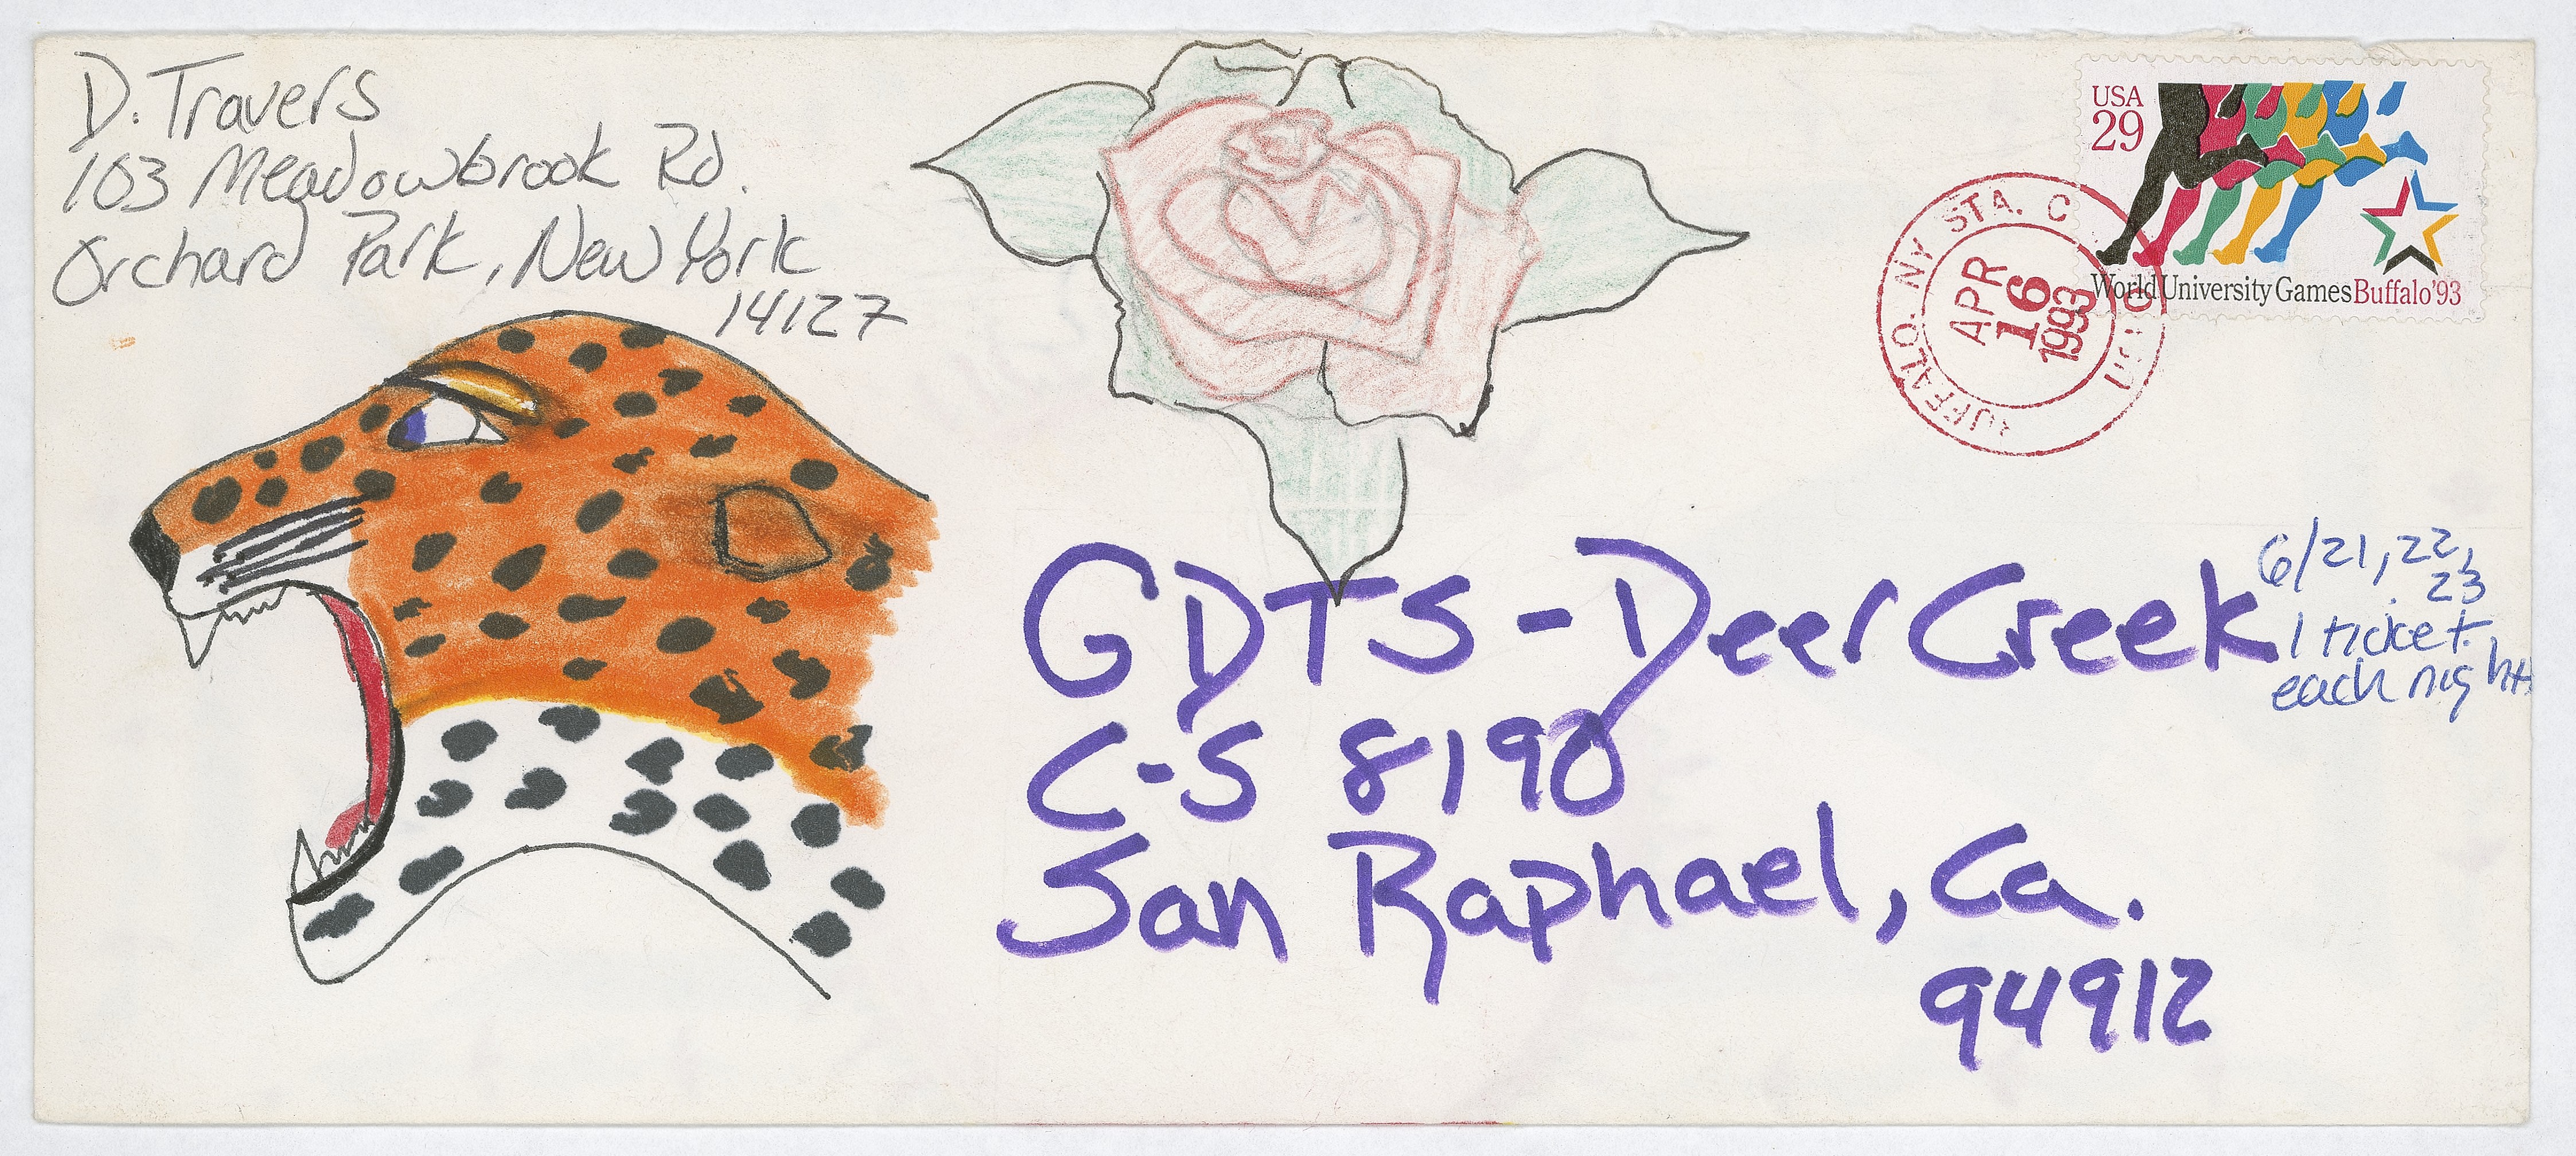 D. Travers
103 Meadowbrook Rd.
Orchard Park, New York
14127
USA
29
World University Games Buffalo '93
NY STA. C
APR
16
1993
GDTS - Deer Creek
C-S 8190
San Raphael, Ca.
94912
6/21, 22,
23
1 ticket
each night